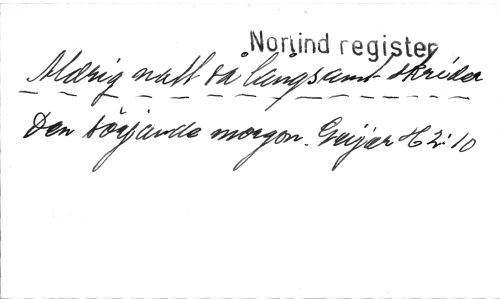 Norlind register
Aldrig natt så långsamt skrider
Den sörjande morgon. Geijer H 2:10